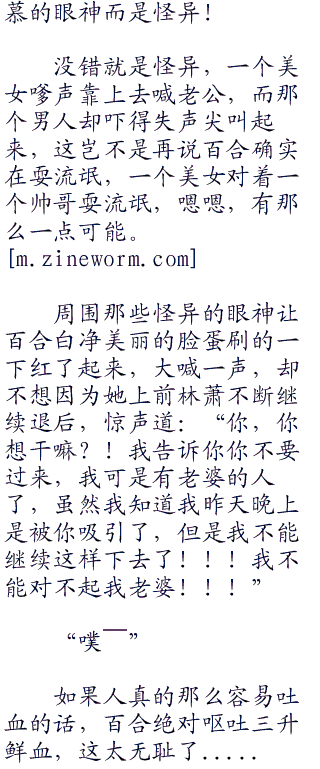 慕的眼神而是怪异！
没错就是怪异，一个美
女嗲声靠上去喊老公，而那
个男人却吓得失声尖叫起
来，这岂不是再说百合确实
在耍流氓，一个美女对着一
个帅哥耍流氓，嗯嗯，有那
么一点可能。
[m.zineworm.com]
周围那些怪异的眼神让
百合白净美丽的脸蛋刷的一
下红了起来，大喊一声，却
不想因为她上前林萧不断继
续退后，惊声道：“你，你
想干嘛？！我告诉你你不要
过来，我可是有老婆的人
了，虽然我知道我昨天晚上
是被你吸引了，但是我不能
继续这样下去了！！！我不
能对不起我老婆！！！”
“噗——”
如果人真的那么容易吐
血的话，百合绝对呕吐三升
鲜血，这太无耻了.....